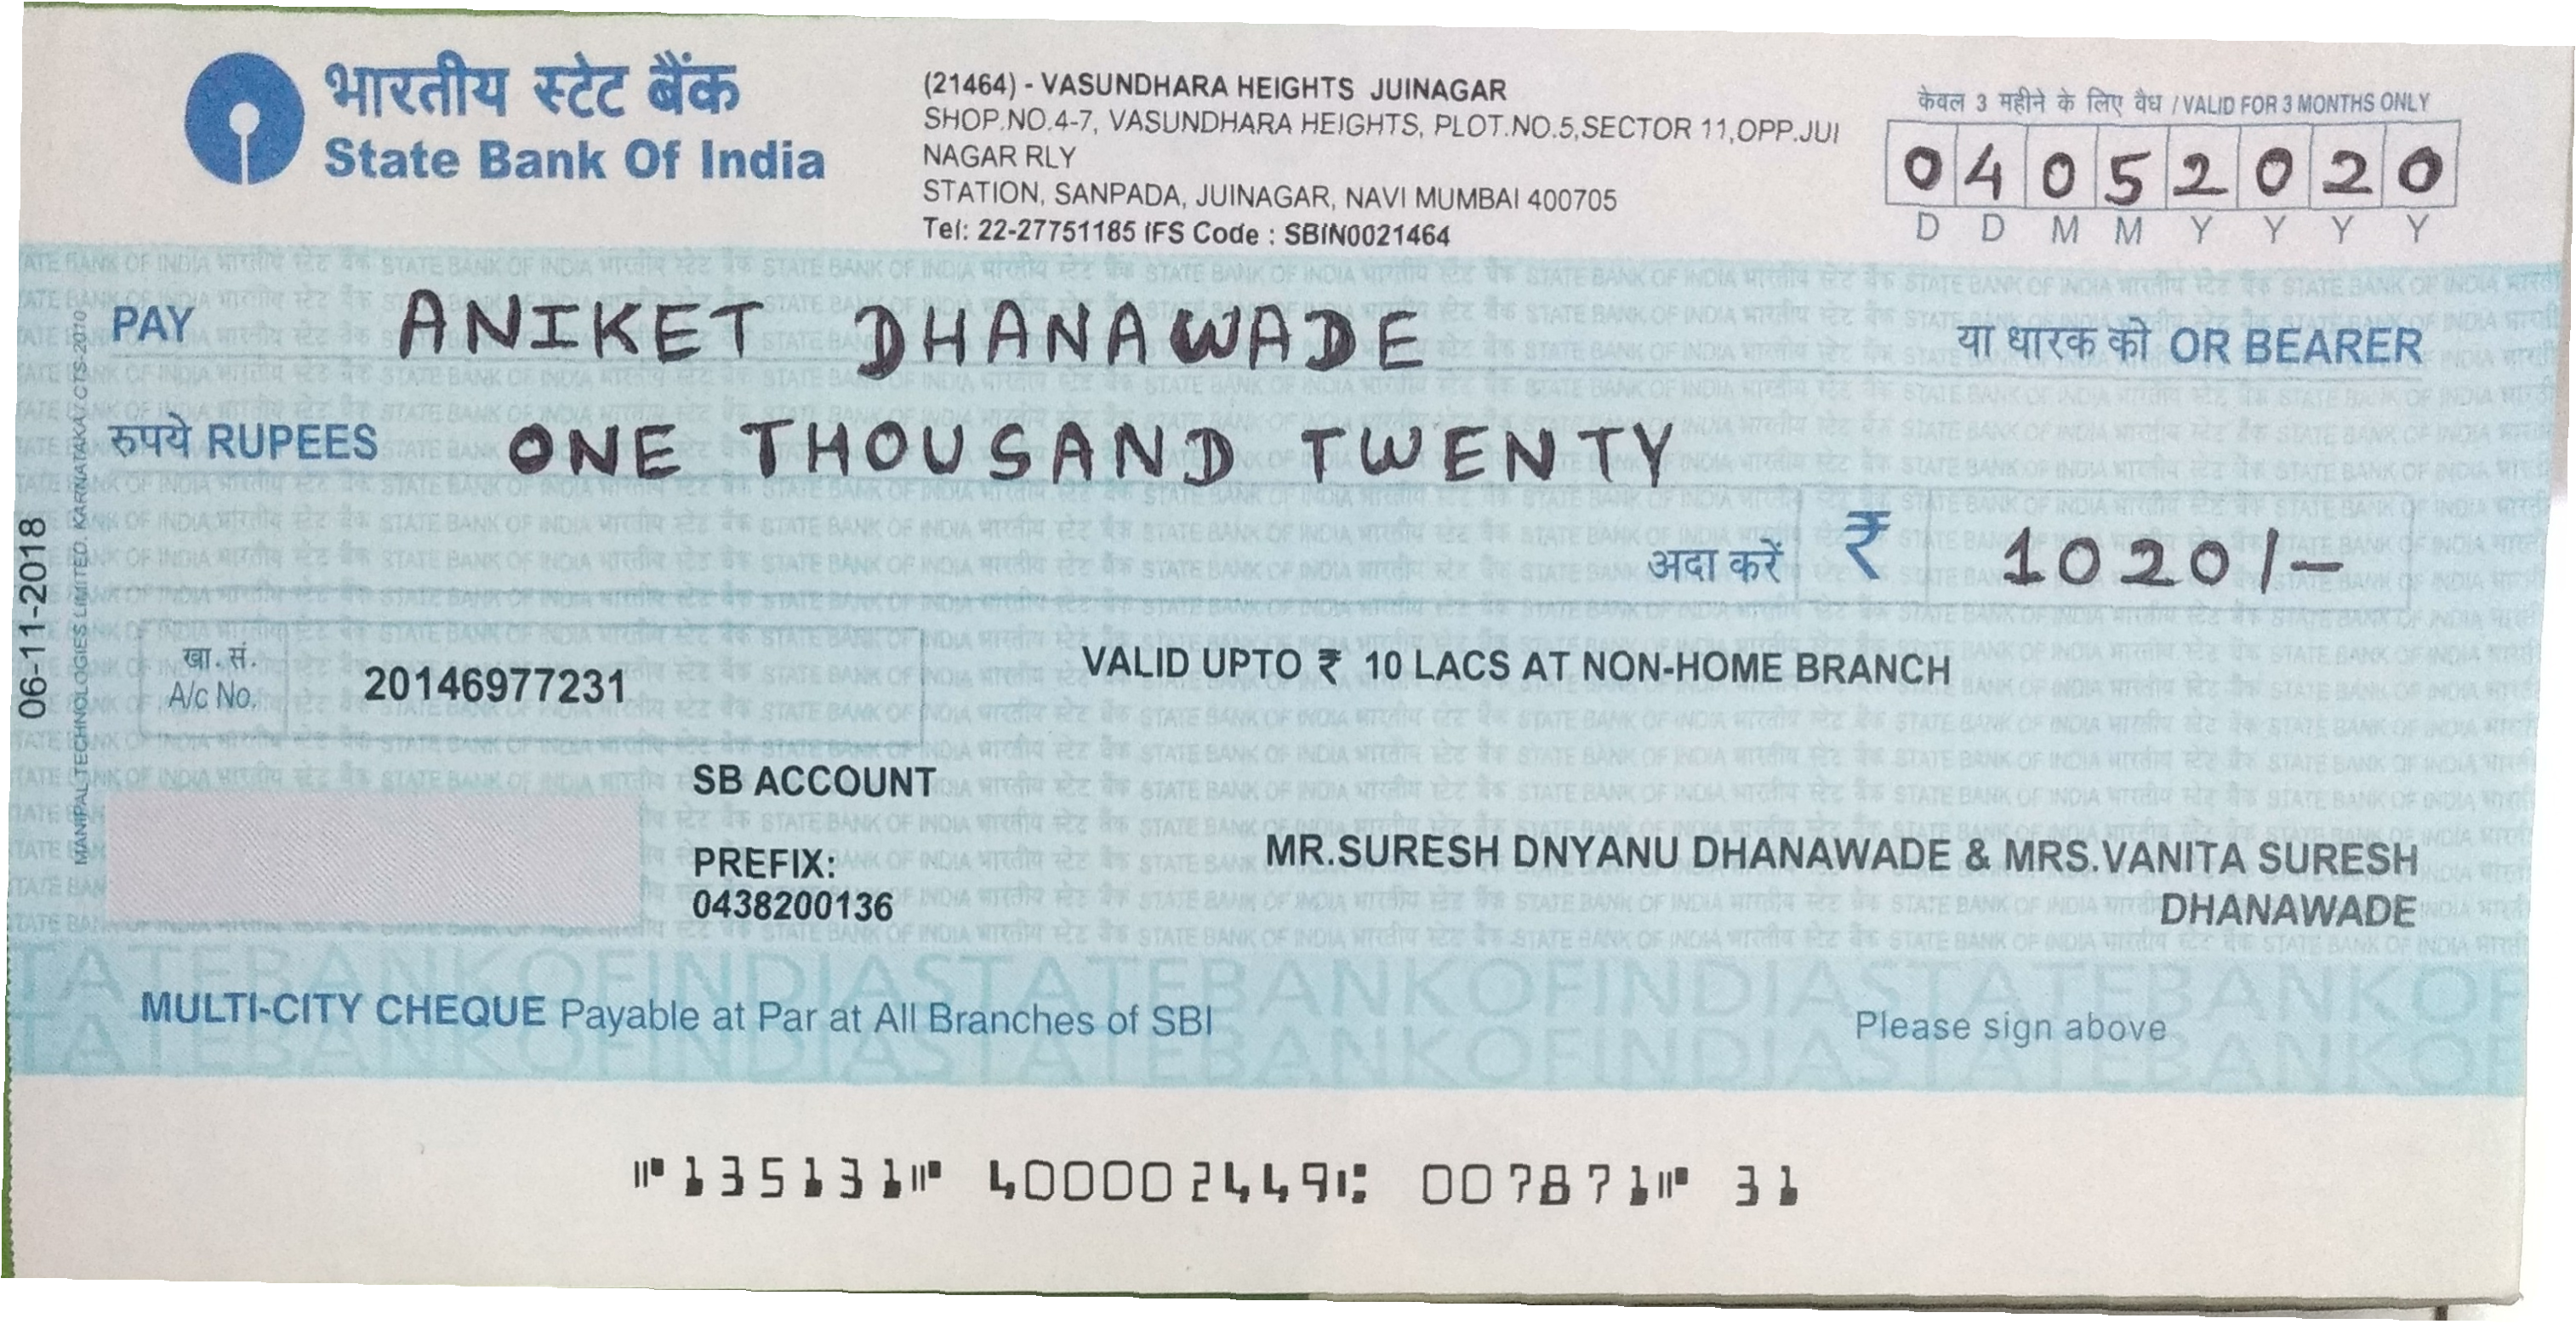 भारतीय स्टेट बैंक
State Bank Of India
(21464) - VASUNDHARA HEIGHTS JUINAGAR
SHOP.NO.4-7, VASUNDHARA HEIGHTS, PLOT.NO.5,SECTOR 11,OPP.JUI
NAGAR RLY
STATION, SANPADA, JUINAGAR, NAVI MUMBAI 400705
Tel: 22-27751185 IFS Code : SBIN0021464
केवल 3 महीने के लिए वैध / VALID FOR 3 MONTHS ONLY
0 4 0 5 2 0 2 0
D D M M Y Y Y Y
PAY ANIKET DHANAWADE या धारक को OR BEARER
रुपये RUPEES ONE THOUSAND TWENTY
अदा करें ₹ 1020/-
06-11-2018
MANIPAL TECHNOLOGIES LIMITED. KARNATAKA / CTS-2010
खा. सं.
A/c No. 20146977231
VALID UPTO ₹ 10 LACS AT NON-HOME BRANCH
SB ACCOUNT
PREFIX:
0438200136
MR.SURESH DNYANU DHANAWADE & MRS.VANITA SURESH
DHANAWADE
MULTI-CITY CHEQUE Payable at Par at All Branches of SBI
Please sign above
⑈135131⑈ 400002449⑆ 007871⑈ 31